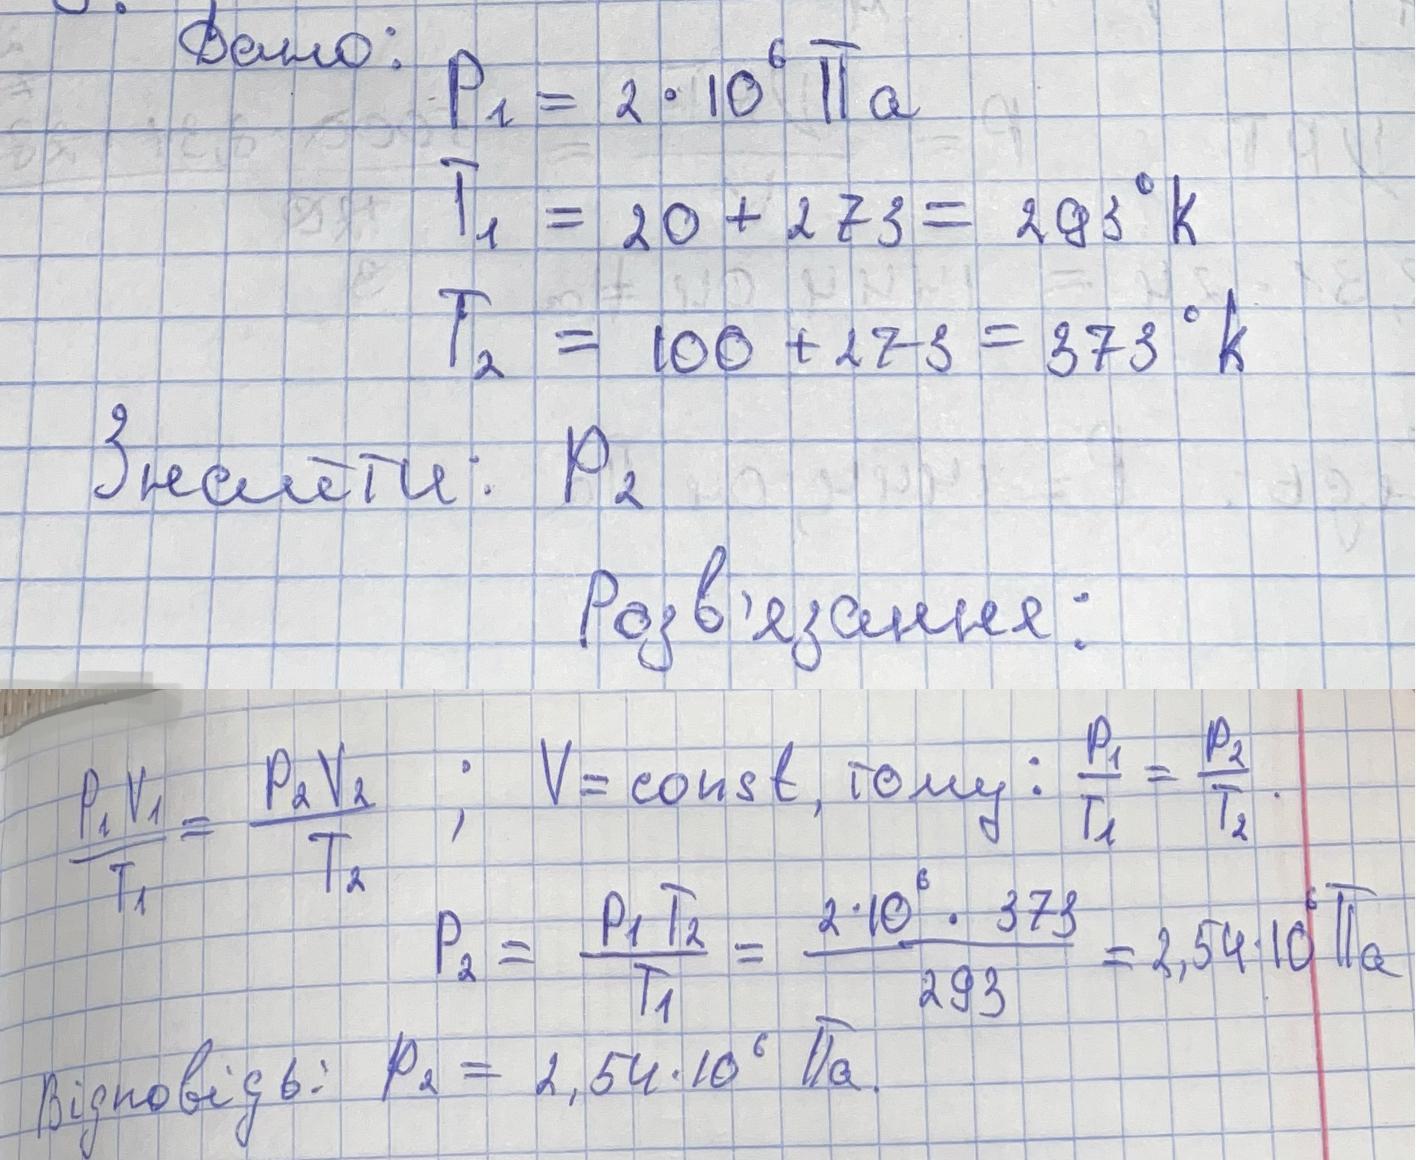 Дано:
P₁ = 2·10⁶ Па
T₁ = 20 + 273 = 293°k
T₂ = 100 + 273 = 373°k
Знайти: P₂
Розв'язання:
P₁V₁/T₁ = P₂V₂/T₂ ; V = const, тому: P₁/T₁ = P₂/T₂.
P₂ = P₁T₂/T₁ = 2·10⁶ · 373/293 = 2,54·10⁶ Па
Відповідь: P₂ = 2,54·10⁶ Па.